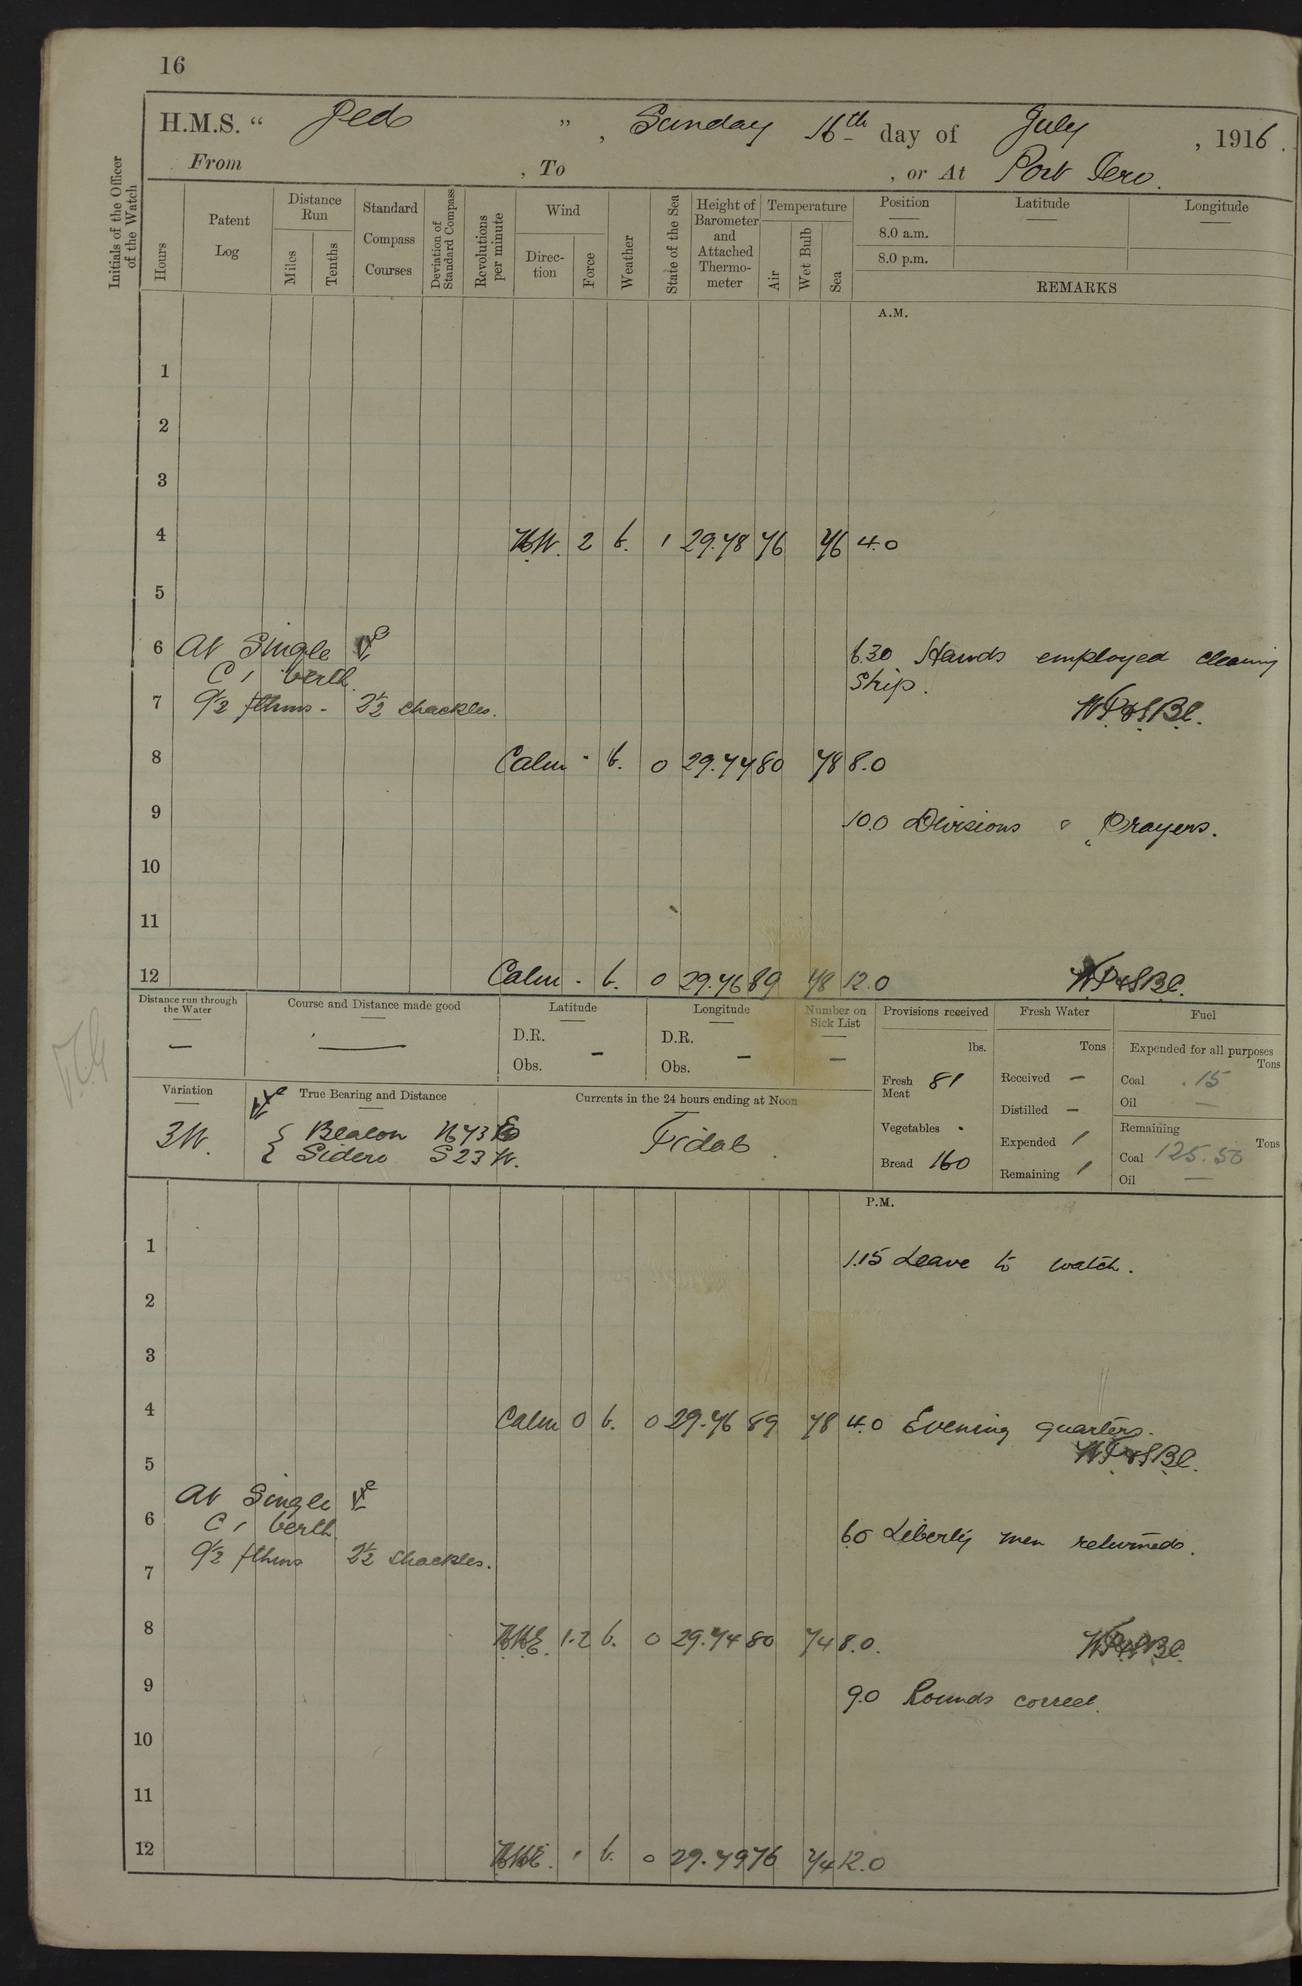 16
H.M.S. “ Jed ” , Sunday 16th day of July , 1916 .
From , To , or At Port Iero.
Initials of the Officer of the Watch
Hours
Patent Log
Distance Run
Miles
Tenths
Standard Compass Courses
Deviation of Standard Compass
Revolutions per minute
Wind
Direction
Force
Weather
State of the Sea
Height of Barometer and Attached Thermometer
Temperature
Air
Wet Bulb
Sea
Position Latitude Longitude
8.0 a.m.
8.0 p.m.
REMARKS
A.M.
1
2
3
4 NW. 2 b. 1 29.78 76 76 4.0
5
6 At Single
6.30 Hands employed cleaning
C 1 berth
Ship.
7 9½ fthms - 2½ shackles.
8 Calm - b. 0 29.77 80 78 8.0
9 10.0 Divisions & Prayers.
10
11
12 Calm - b. 0 29.76 89 78 12.0
Distance run through the Water —
Course and Distance made good —
Latitude
D.R.
Obs. —
Longitude
D.R.
Obs. —
Number on Sick List —
Provisions received
lbs.
Fresh Meat 81
Vegetables -
Bread 160
Fresh Water
Tons
Received —
Distilled —
Expended 1
Remaining 1
Fuel
Expended for all purposes
Tons
Coal .15
Oil —
Remaining
Tons
Coal 125.50
Oil —
Variation
3W.
True Bearing and Distance
{ Beacon N673E
{ Sidero S23W.
Currents in the 24 hours ending at Noon
Tidal.
P.M.
1 1.15 Leave to watch.
2
3
4 Calm 0 b. 0 29.76 89 78 4.0 Evening quarters.
5
At Single
6 C 1 berth
6.0 Liberty men returned.
9½ fthms 2½ shackles.
7
8 NNE. 1-2 b. 0 29.74 80 74 8.0.
9 9.0 Rounds correct.
10
11
12 NNE. 1 b. 0 29.79 76 74 12.0